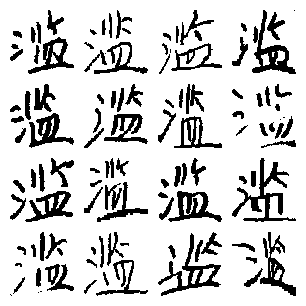 滥滥滥滥
滥滥滥滥
滥滥滥滥
滥滥滥滥